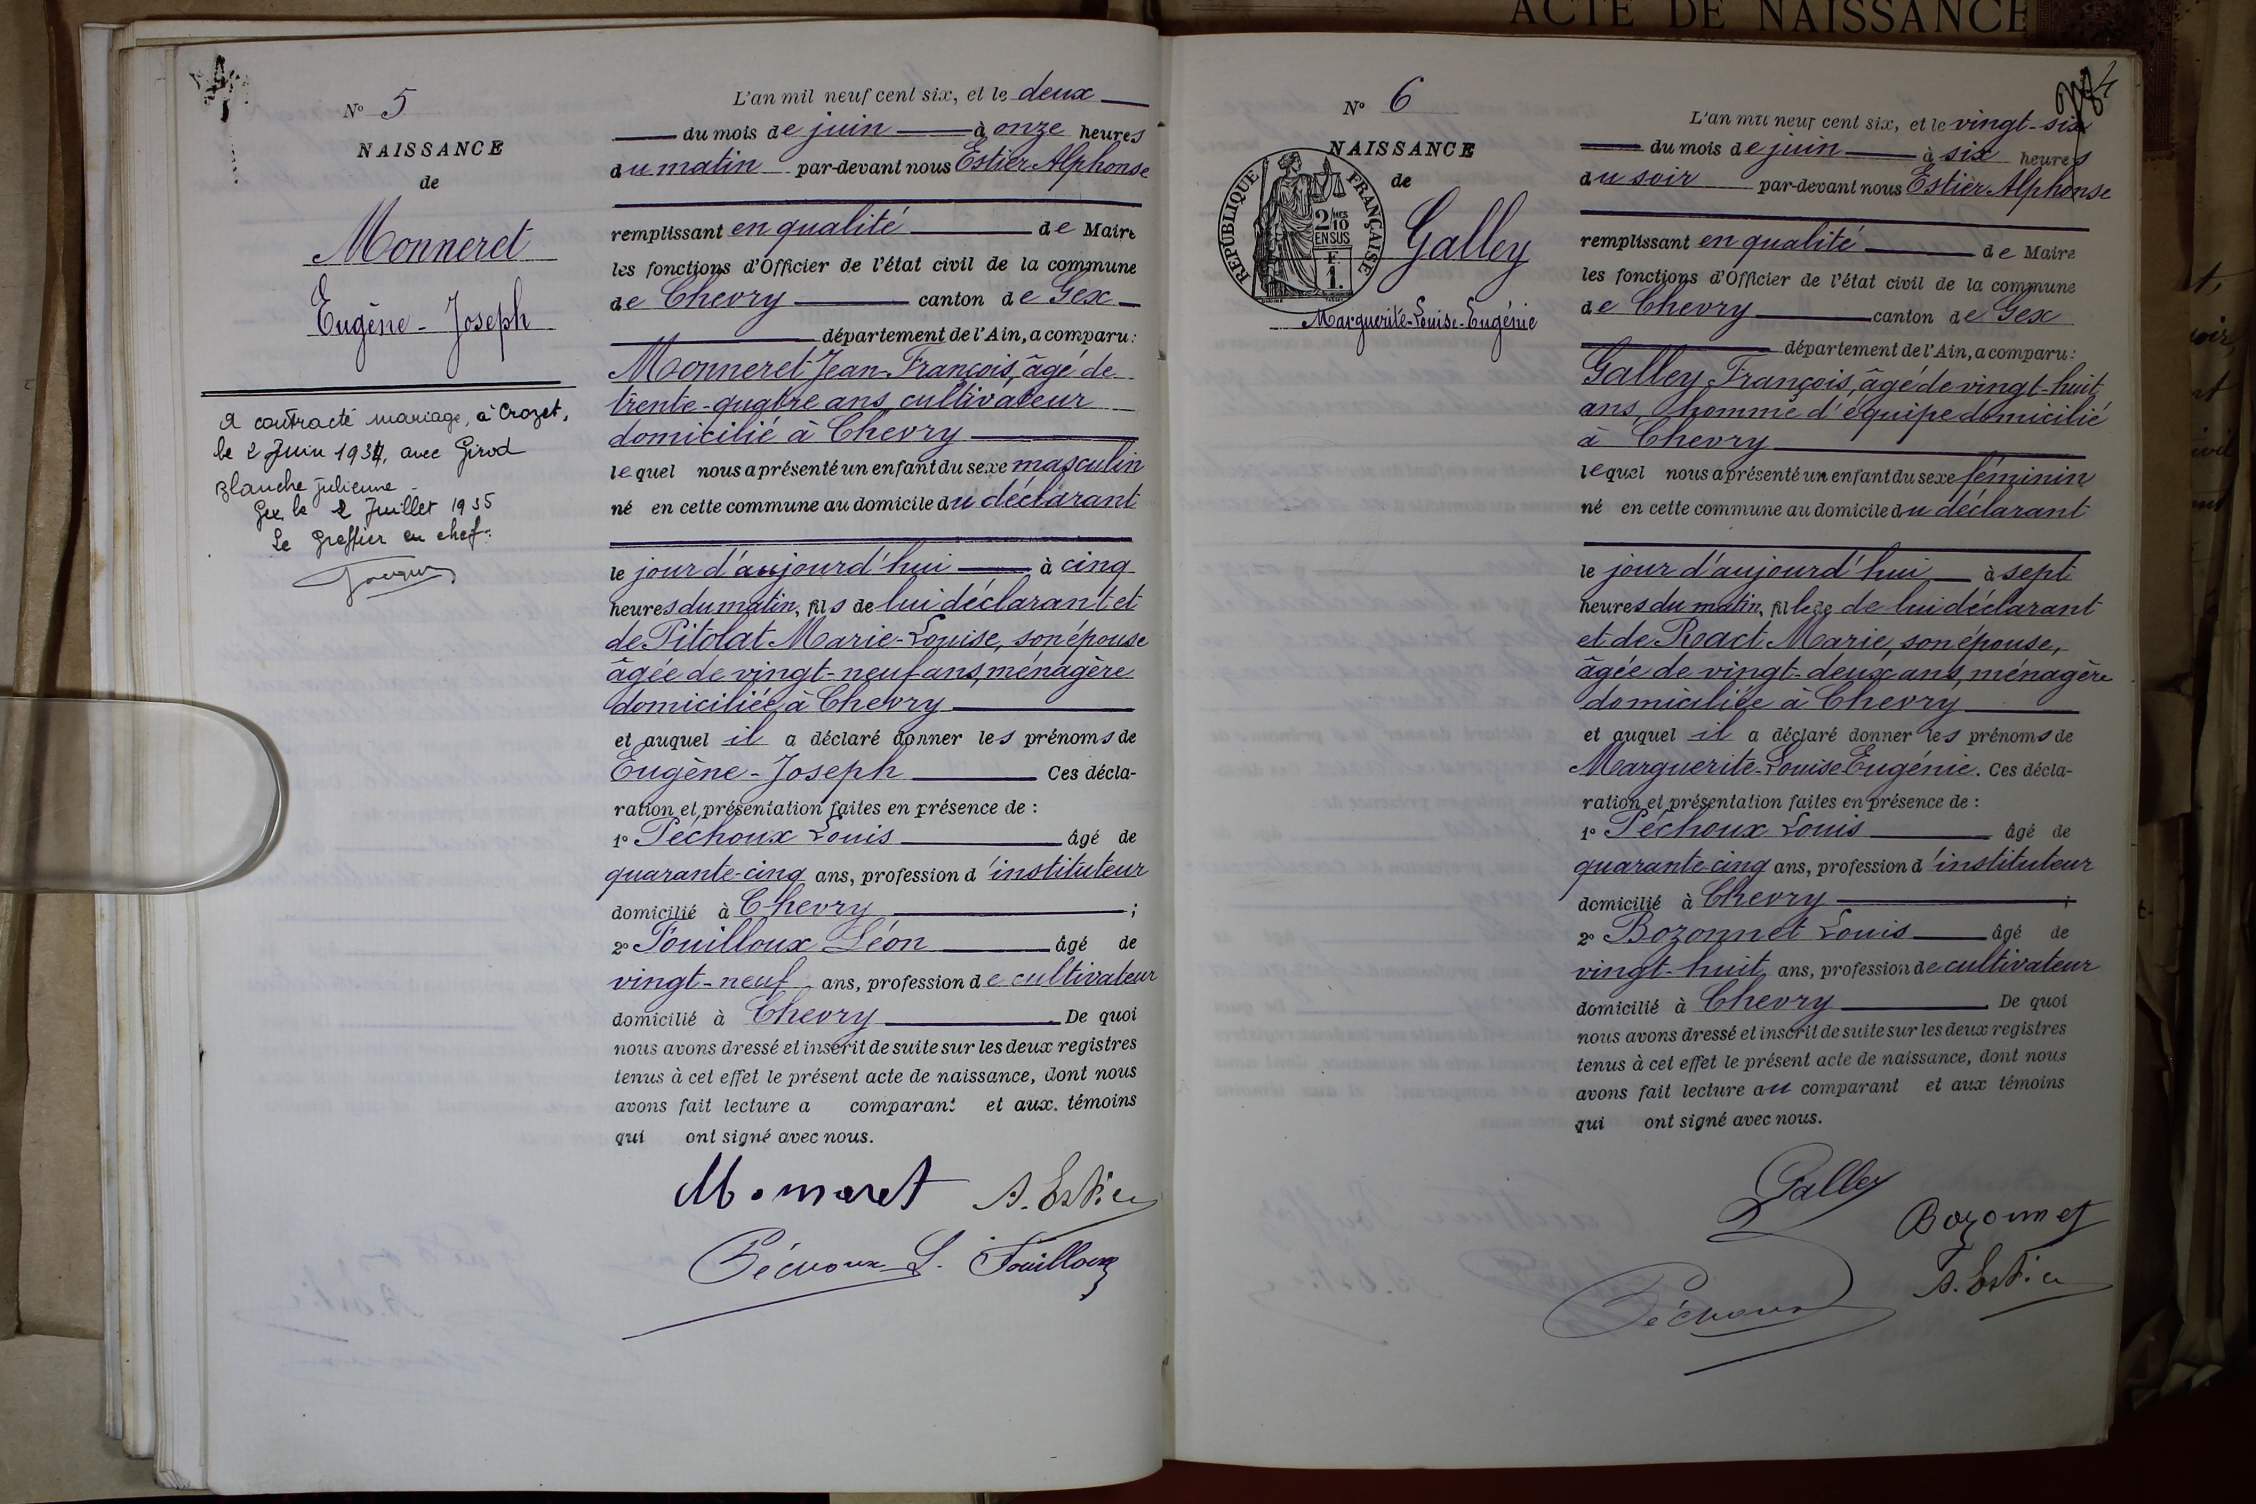 ACTE DE NAISSANCE
N° 5
NAISSANCE
de
Monneret
Eugène-Joseph
A contracté mariage, à Crozet,
le 2 Juin 1934, avec Girod
Blanche Julienne.
Gex, le 2 Juillet 1935
Le Greffier en chef:
L'an mil neuf cent six, et le deux
du mois de juin à onze heures
du matin par-devant nous Estier Alphonse
remplissant en qualité de Maire
les fonctions d'Officier de l'état civil de la commune
de Chevry canton de Gex
département de l'Ain, a comparu:
Monneret Jean-François, âgé de
trente-quatre ans cultivateur
domicilié à Chevry
lequel nous a présenté un enfant du sexe masculin
né en cette commune au domicile du déclarant
le jour d'aujourd'hui à cinq
heures du matin, fils de lui déclarant et
de Pitolat Marie-Louise, son épouse
âgée de vingt-neuf ans, ménagère
domiciliée à Chevry
et auquel il a déclaré donner les prénoms de
Eugène-Joseph Ces décla-
ration et présentation faites en présence de :
1° Péchoux Louis âgé de
quarante-cinq ans, profession d'instituteur
domicilié à Chevry ;
2° Fouilloux Léon âgé de
vingt-neuf ans, profession de cultivateur
domicilié à Chevry De quoi
nous avons dressé et inscrit de suite sur les deux registres
tenus à cet effet le présent acte de naissance, dont nous
avons fait lecture a comparant et aux témoins
qui ont signé avec nous.
Monneret A. Estier
Péchoux L. Fouilloux
N° 6
NAISSANCE
de
RÉPUBLIQUE FRANÇAISE
2/10 MES
EN SUS
F.
1.
Galley
Marguerite-Louise-Eugénie
L'an mil neuf cent six, et le vingt-six
du mois de juin à six heures
du soir par-devant nous Estier Alphonse
remplissant en qualité de Maire
les fonctions d'Officier de l'état civil de la commune
de Chevry canton de Gex
département de l'Ain, a comparu:
Galley François, âgé de vingt-huit
ans, homme d'équipe domicilié
à Chevry
lequel nous a présenté un enfant du sexe féminin
né en cette commune au domicile du déclarant
le jour d'aujourd'hui à sept
heures du matin, fille de de lui déclarant
et de Ract Marie, son épouse,
âgée de vingt-deux ans, ménagère
domiciliée à Chevry
et auquel il a déclaré donner les prénoms de
Marguerite-Louise Eugénie. Ces décla-
ration et présentation faites en présence de :
1° Péchoux Louis âgé de
quarante-cinq ans, profession d'instituteur
domicilié à Chevry ;
2° Bozonnet Louis âgé de
vingt-huit ans, profession de cultivateur
domicilié à Chevry De quoi
nous avons dressé et inscrit de suite sur les deux registres
tenus à cet effet le présent acte de naissance, dont nous
avons fait lecture au comparant et aux témoins
qui ont signé avec nous.
Galley
Bozonnet
Péchoux A. Estier